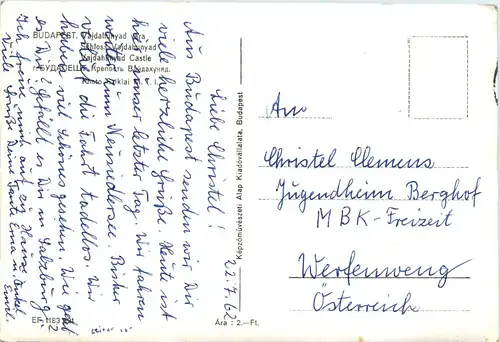 BUDAPEST. Vajdahunyad vára
Schloss Vajdahunyad
Vajdahunyad Castle
г. БУДАПЕШТ. Крепость Вайдахунид.
22.7.62
Liebe Christel!
Aus Budapest senden wir Dir
viele herzliche Grüße. Heute ist
hier unser letzter Tag. Wir fahren
weiter zum Neusiedlersee. Bisher
verlief die Fahrt tadellos. Wir
haben viel Schönes gesehen. Wie geht
es Dir? Gefällt es Dir in Salzburg?
Ich freue mich auf zu Hause.
Viele Grüße Deine Tante Erna u. Onkel
Emil
Képzőművészeti Alap Kiadóvállalata, Budapest
Ára : 2.- Ft.
An
Christel Clemens
Jugendheim Berghof
MBK-Freizeit
Werfenweng
Österreich